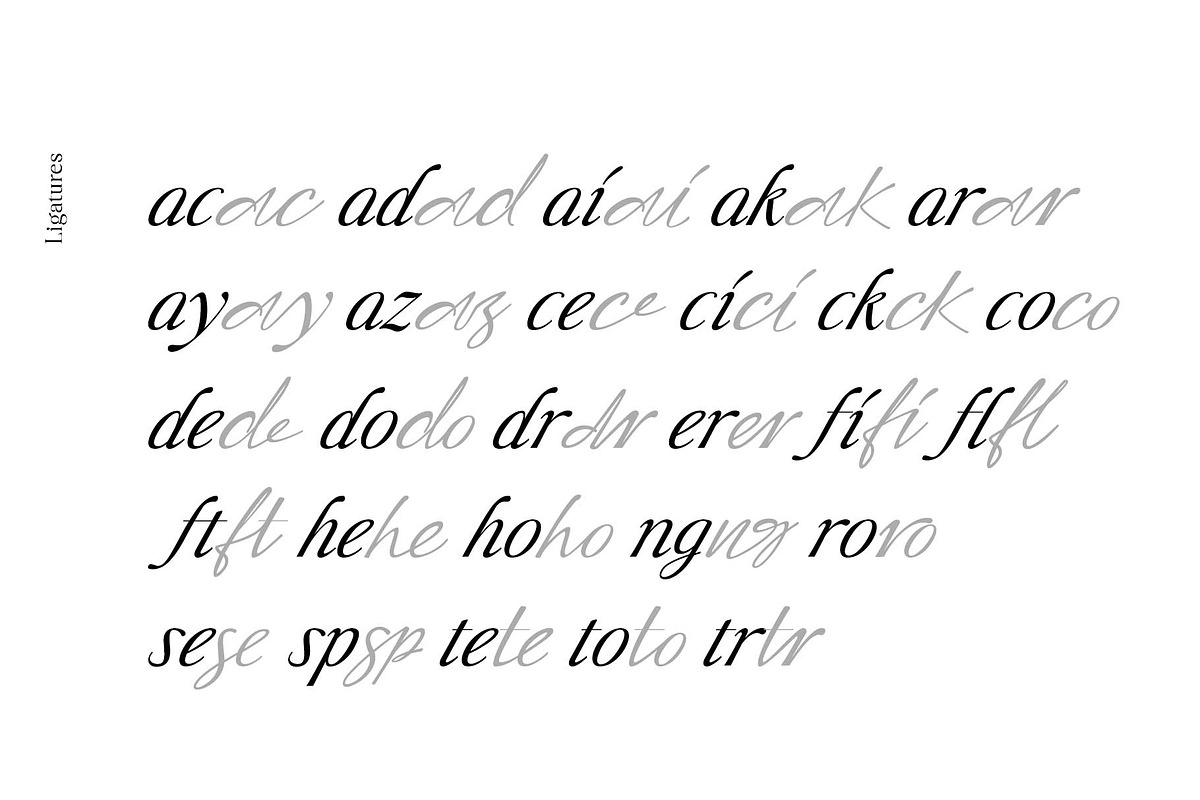 Ligatures
acac adad aíaí akak arar
ayay azaz cece cící ckck coco
dede dodo drdr erer fífí flfl
ftft hehe hoho ngng roro
sese spsp tete toto trtr